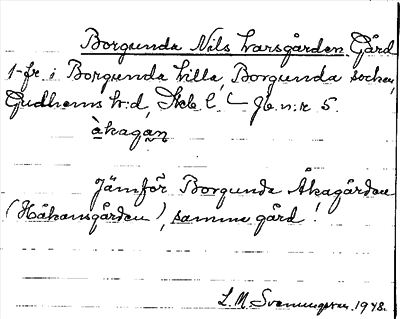 Borgunda Nils Larsgården. Gård
1-fr i Borgunda Lilla, Borgunda socken,
Gudhems h:d, Skb l. Jb. n:r 5.
åkagaṉ
Jämför Borgunda Åkagården
(Håkansgården), samme gård!
L. M. Svenungsson. 1948.